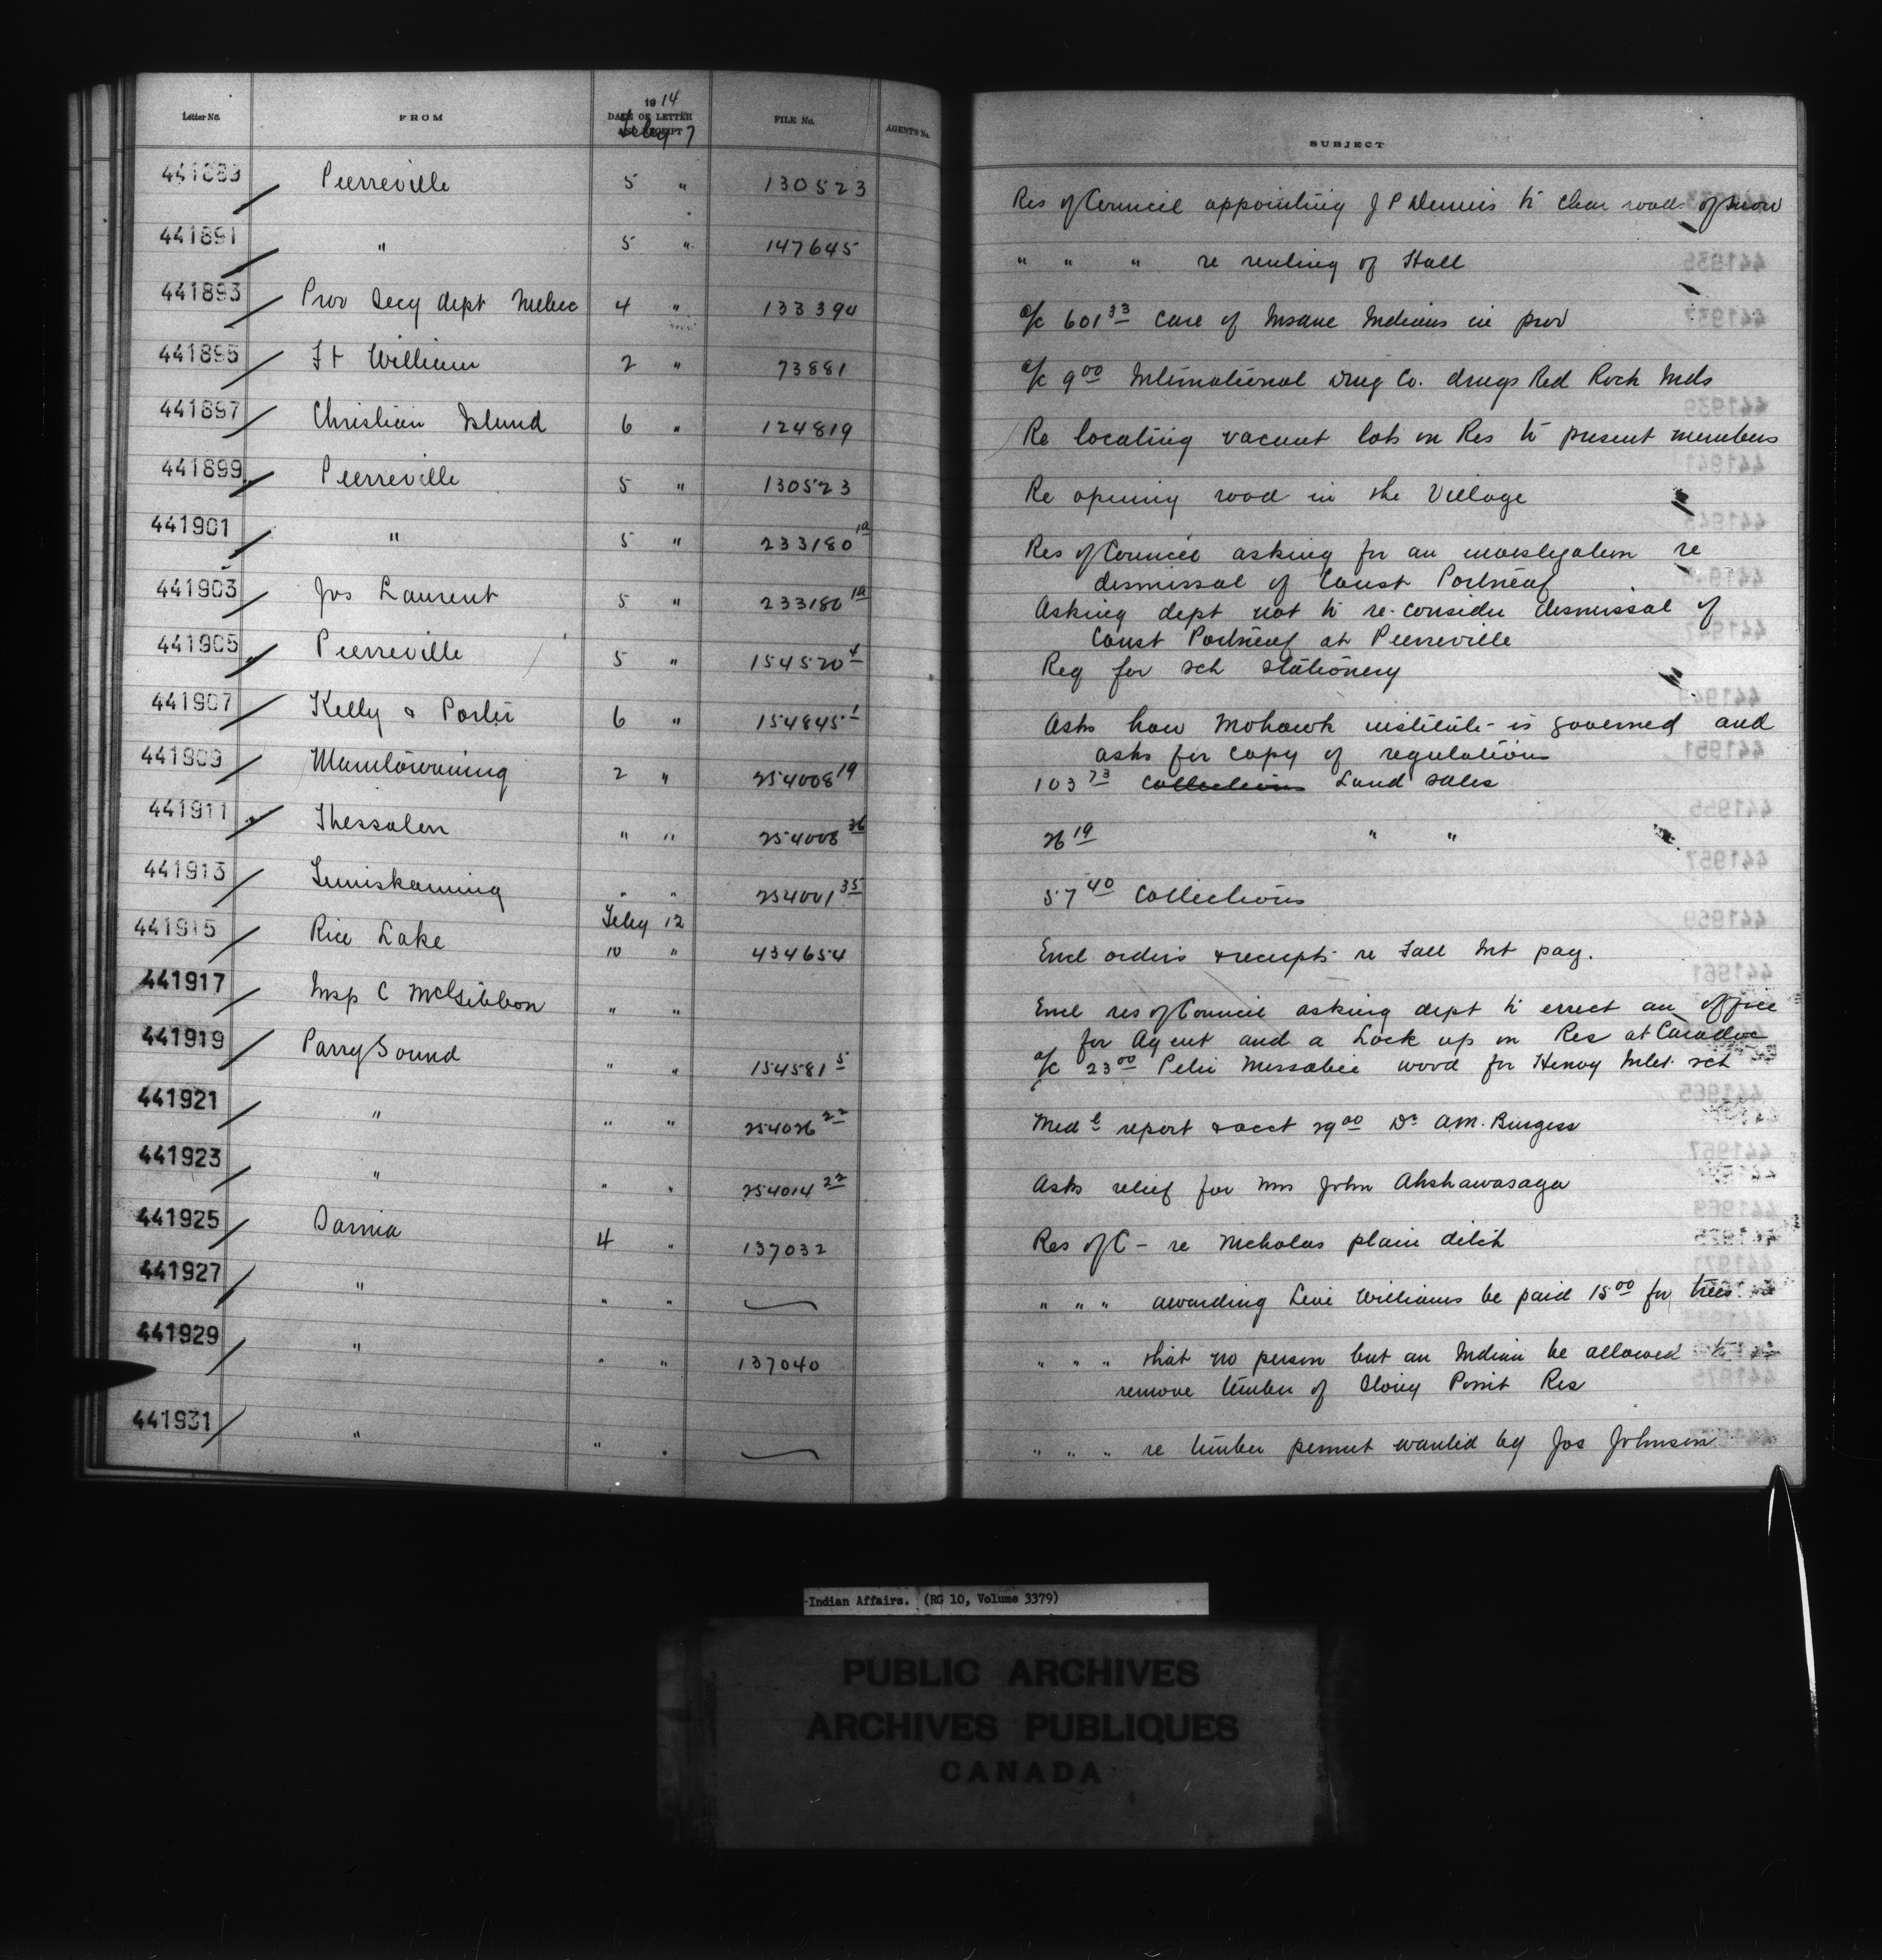 Letter No. FROM 1914 DATE OF LETTER AND RECEIPT FILE No. AGENT'S No. SUBJECT
Feby 7
441889 Pierreville 5 " 130523 Res of Council appointing J P Dennis to clear roads of snow
441891 " 5 " 147645 " " " re renting of Hall
441893 Prov Secy dept Quebec 4 " 133394 a/c 601 33 care of Insane Indians in prov
441895 Ft William 2 " 73881 a/c 9 00 International Drug Co. drugs Red Rock Inds
441897 Christian Island 6 " 124819 Re locating vacant lots on Res to present members
441899 Pierreville 5 " 130523 Re opening road in the Village
441901 " 5 " 233180 1a Res of Council asking for an investigation re
dismissal of Const Portneuf
441903 Jos Laurent 5 " 233180 1a Asking dept not to re-consider dismissal of
Const Portneuf at Pierreville
441905 Pierreville 5 " 154520 4 Req for sch stationery
441907 Kelly & Porter 6 " 154845 1 Asks how Mohawk institute is governed and
asks for copy of regulations
441909 Manitowaning 2 " 254008 19 103 73 collections Land sales
441911 Thessalon " " 254008 26 26 19 " "
441913 Temiskaming " " 254001 35 57 40 Collections
Feby 12
441915 Rice Lake 10 " 434654 Encl orders & receipts re Fall Int pay.
441917 Insp C McGibbon " " Encl res of Council asking dept to errect an office
for Agent and a Lock up on Res at Caradoc
441919 Parry Sound " " 154581 5 a/c 23 00 Peter Messabie wood for Henvy Inlet sch
441921 " " " 254026 22 Med l report & acct 29 00 Dr A.M. Burgess
441923 " " " 254014 22 Asks relief for Mrs John Ahshawasaga
441925 Sarnia 4 " 137032 Res of C - re Nicholas plain ditch
441927 " " " " " " awarding Levi Williams be paid 15 00 for trees
441929 " " " 137040 " " " that no person but an Indian be allowed to
remove timber of Stony Point Res
441931 " " " " " " re timber permit wanted by Jos Johnson
Indian Affairs. (RG 10, Volume 3379)
PUBLIC ARCHIVES
ARCHIVES PUBLIQUES
CANADA